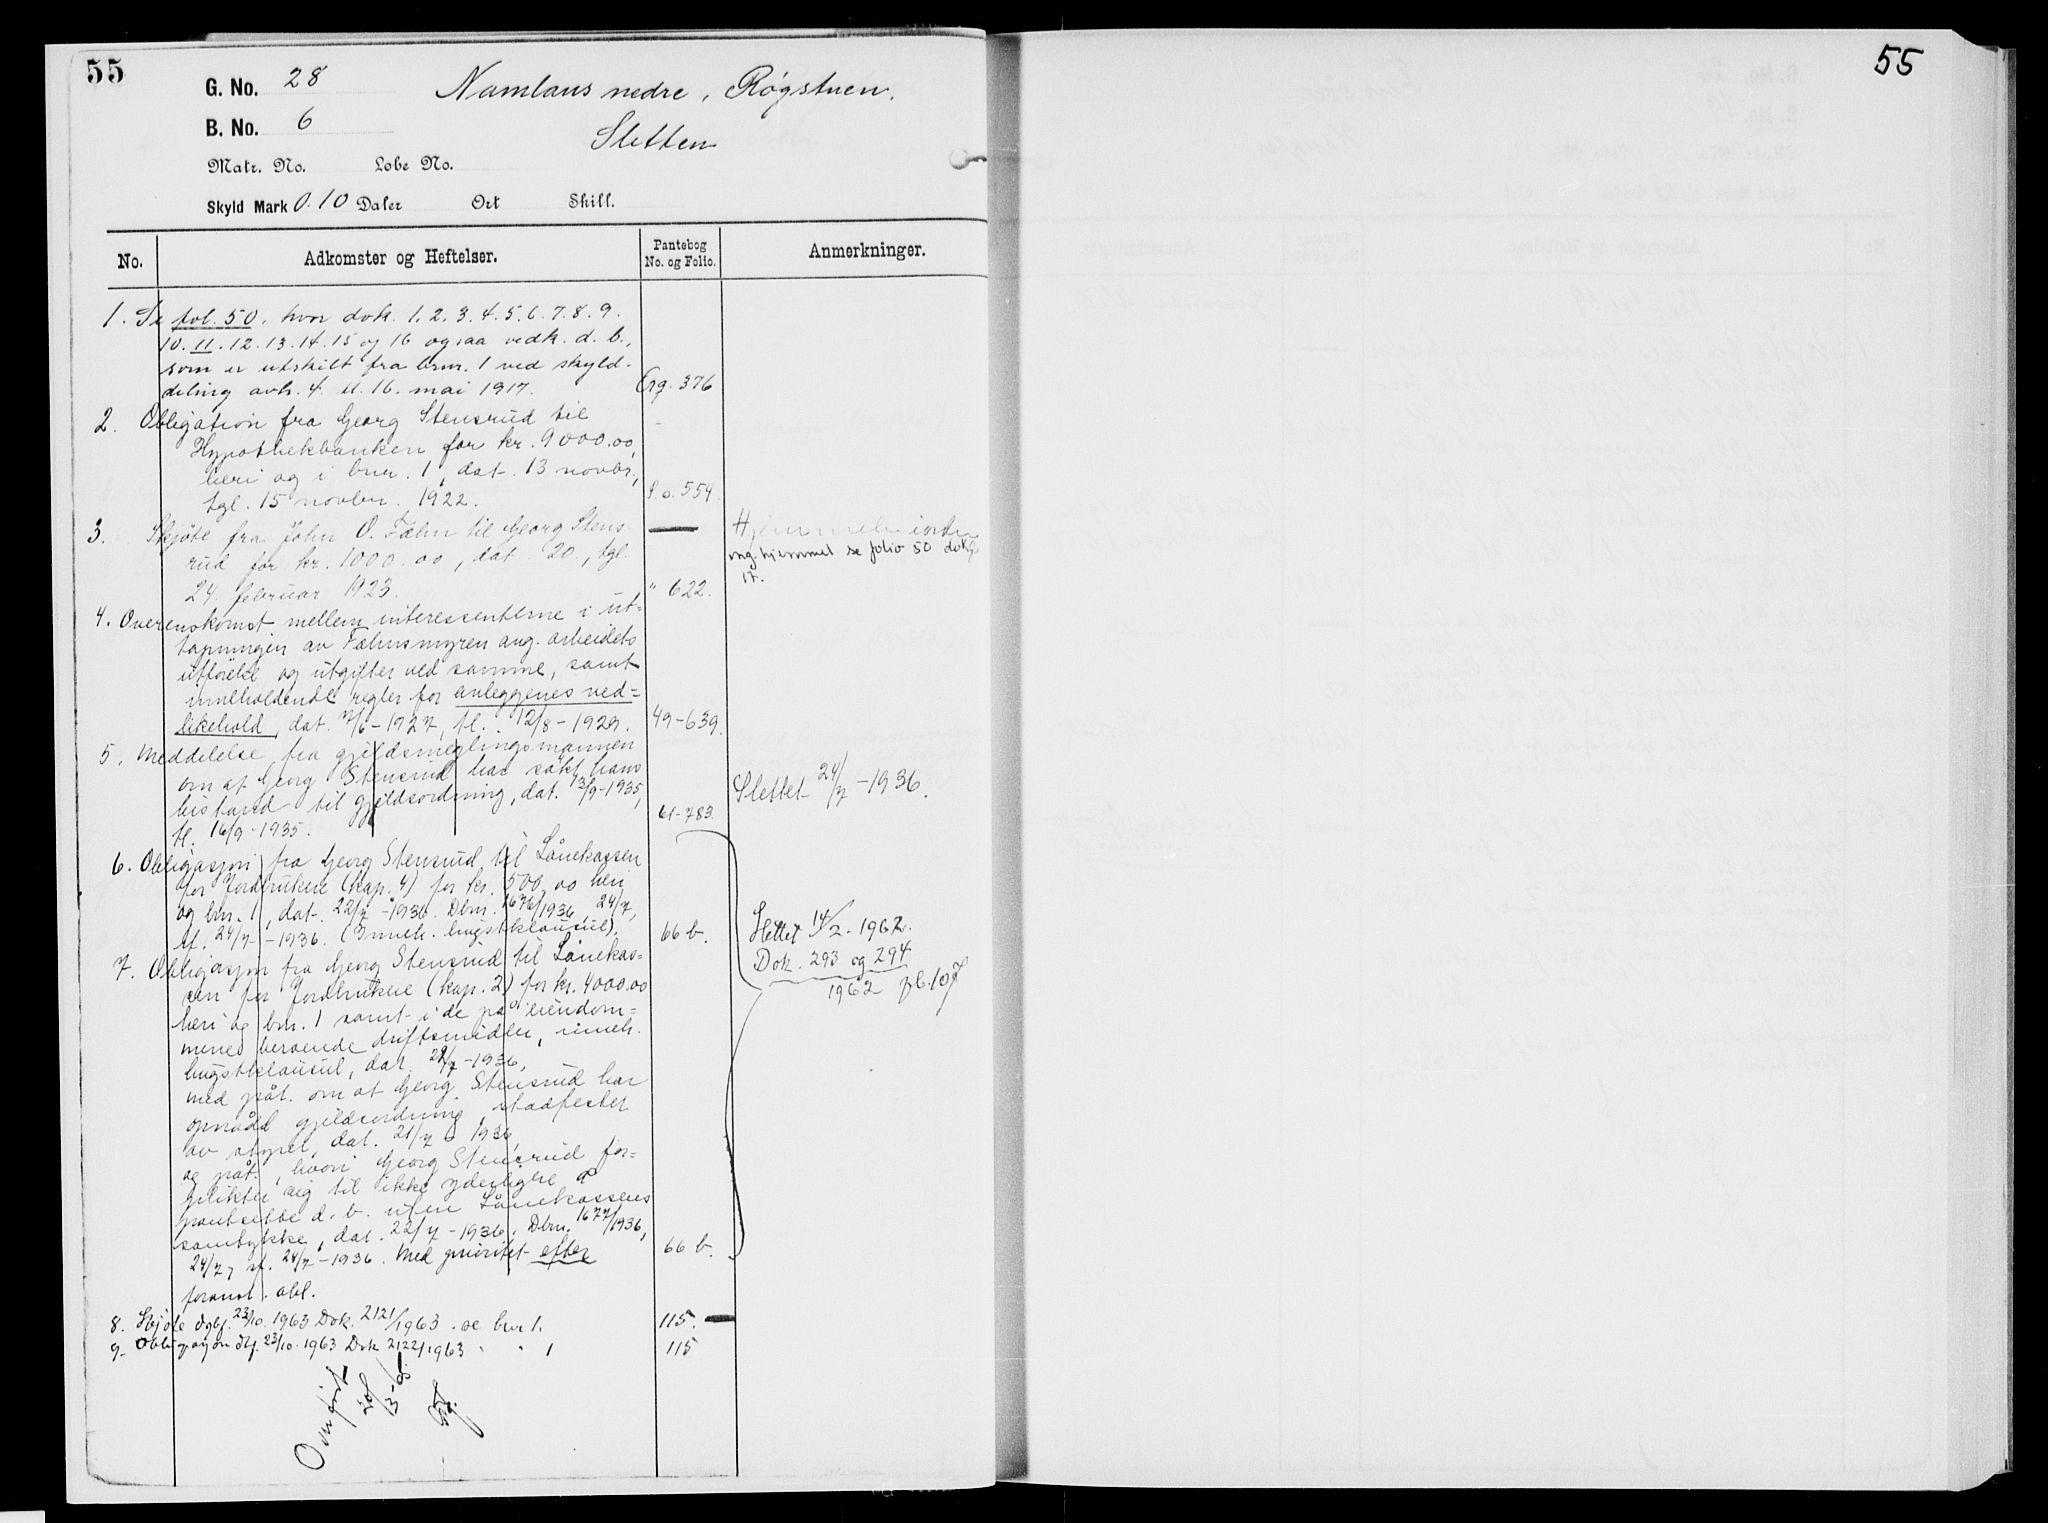 55
G. No. 28
Namlaus nedre, Røgstuen.
B. No. 6
Sletten
Matr. No. Løbe No.
Skyld Mark 0.10 Daler Ort Skill.
No. Adkomster og Heftelser. Pantebog No. og Folio. Anmerkninger.
1. Se fol. 50, hvor dok. 1. 2. 3. 4. 5. 6. 7. 8. 9.
10. 11. 12. 13. 14. 15 og 16 ogsaa vedk. d. b.,
som er utskilt fra brnr. 1 ved skyld-
deling avh. 4. tl. 16. mai 1917. Erg. 376
2. Obligation fra Georg Stensrud til
Hypothekbanken for kr. 9000.00,
heri og i bnr. 1, dat. 13 novbr,
tgl. 15 novbr. 1922. S. o. 554.
3. Skjøte fra John O. Fæhn til Georg Stens-
rud for kr. 1000.00, dat. 20, tgl.
24. februar 1923. " 622.
Hjemmelsinnh.
ang. hjemmel se folio 50 dok.
17.
4. Overenskomst mellem interessenterne i ut-
tapningen av Fæhnsmyren ang. arbeidets
utførelse og utgifter ved samme, samt
inneholdende regler for anleggenes ved=
likehold, dat. 7/6-1927, tl. 12/8-1929. 49-639.
5. Meddelelse fra gjeldsmeglingsmannen
om at Georg Stensrud har søkt hans
bistand til gjeldsordning, dat. 13/9-1935,
tl. 16/9-1935. 61-783.
Slettet 24/7-1936.
6. Obligasjon fra Georg Stensrud til Lånekassen
for Jordbrukere (kap. 4) for kr. 500,00 heri
og bnr. 1, dat. 22/7-1936. Dbnr. 1676/1936, 24/7,
tl. 24/7-1936. (Inneh. hugstklausul). 66 b.
7. Obligasjon fra Georg Stensrud til Lånekas=
sen for Jordbrukere (kap. 2) for kr. 4000.00
heri og bnr. 1 samt i de på eiendom=
mene beroende driftsmidler, inneh.
hugstklausul, dat. 22/7-1936,
med påt. om at Georg Stensrud har
opnådd gjeldsordning, stadfestet
av styret, dat. 21/7-1936,
og påt., hvori Georg Stensrud for=
plikter sig til ikke yderligere å
pantsette d. b. uten Lånekassens
samtykke, dat. 22/7-1936. Dbnr. 1677/1936,
24/7, tl. 24/7-1936. Med prioritet efter 66 b.
foranst. obl.
Slettet 14/2-1962.
Dok. 293 og 294
1962 pb. 107
8. Skjøte dgbf. 23/10. 1963 Dok. 2121/1963. se bnr 1. 115.
9. Obligasjon dbf. 23/10. 1963 Dok 2122/1963 " " 1 115
Overført
55